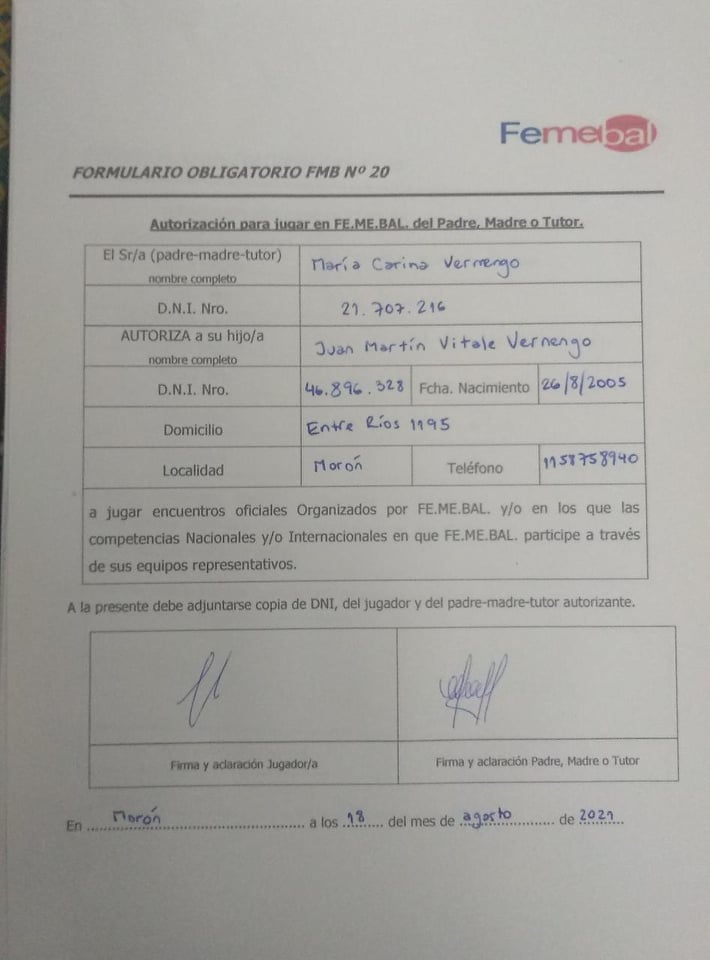 Femebal
FORMULARIO OBLIGATORIO FMB Nº 20
Autorización para jugar en FE.ME.BAL. del Padre, Madre o Tutor.
El Sr/a (padre-madre-tutor) María Carina Vernengo
nombre completo
D.N.I. Nro. 21.707.216
AUTORIZA a su hijo/a Juan Martín Vitale Vernengo
nombre completo
D.N.I. Nro. 46.896.328 Fcha. Nacimiento 26/8/2005
Domicilio Entre Ríos 1195
Localidad Morón Teléfono 1158758940
a jugar encuentros oficiales Organizados por FE.ME.BAL. y/o en los que las
competencias Nacionales y/o Internacionales en que FE.ME.BAL. participe a través
de sus equipos representativos.
A la presente debe adjuntarse copia de DNI, del jugador y del padre-madre-tutor autorizante.
Firma y aclaración Jugador/a Firma y aclaración Padre, Madre o Tutor
En Morón a los 18 del mes de agosto de 2021